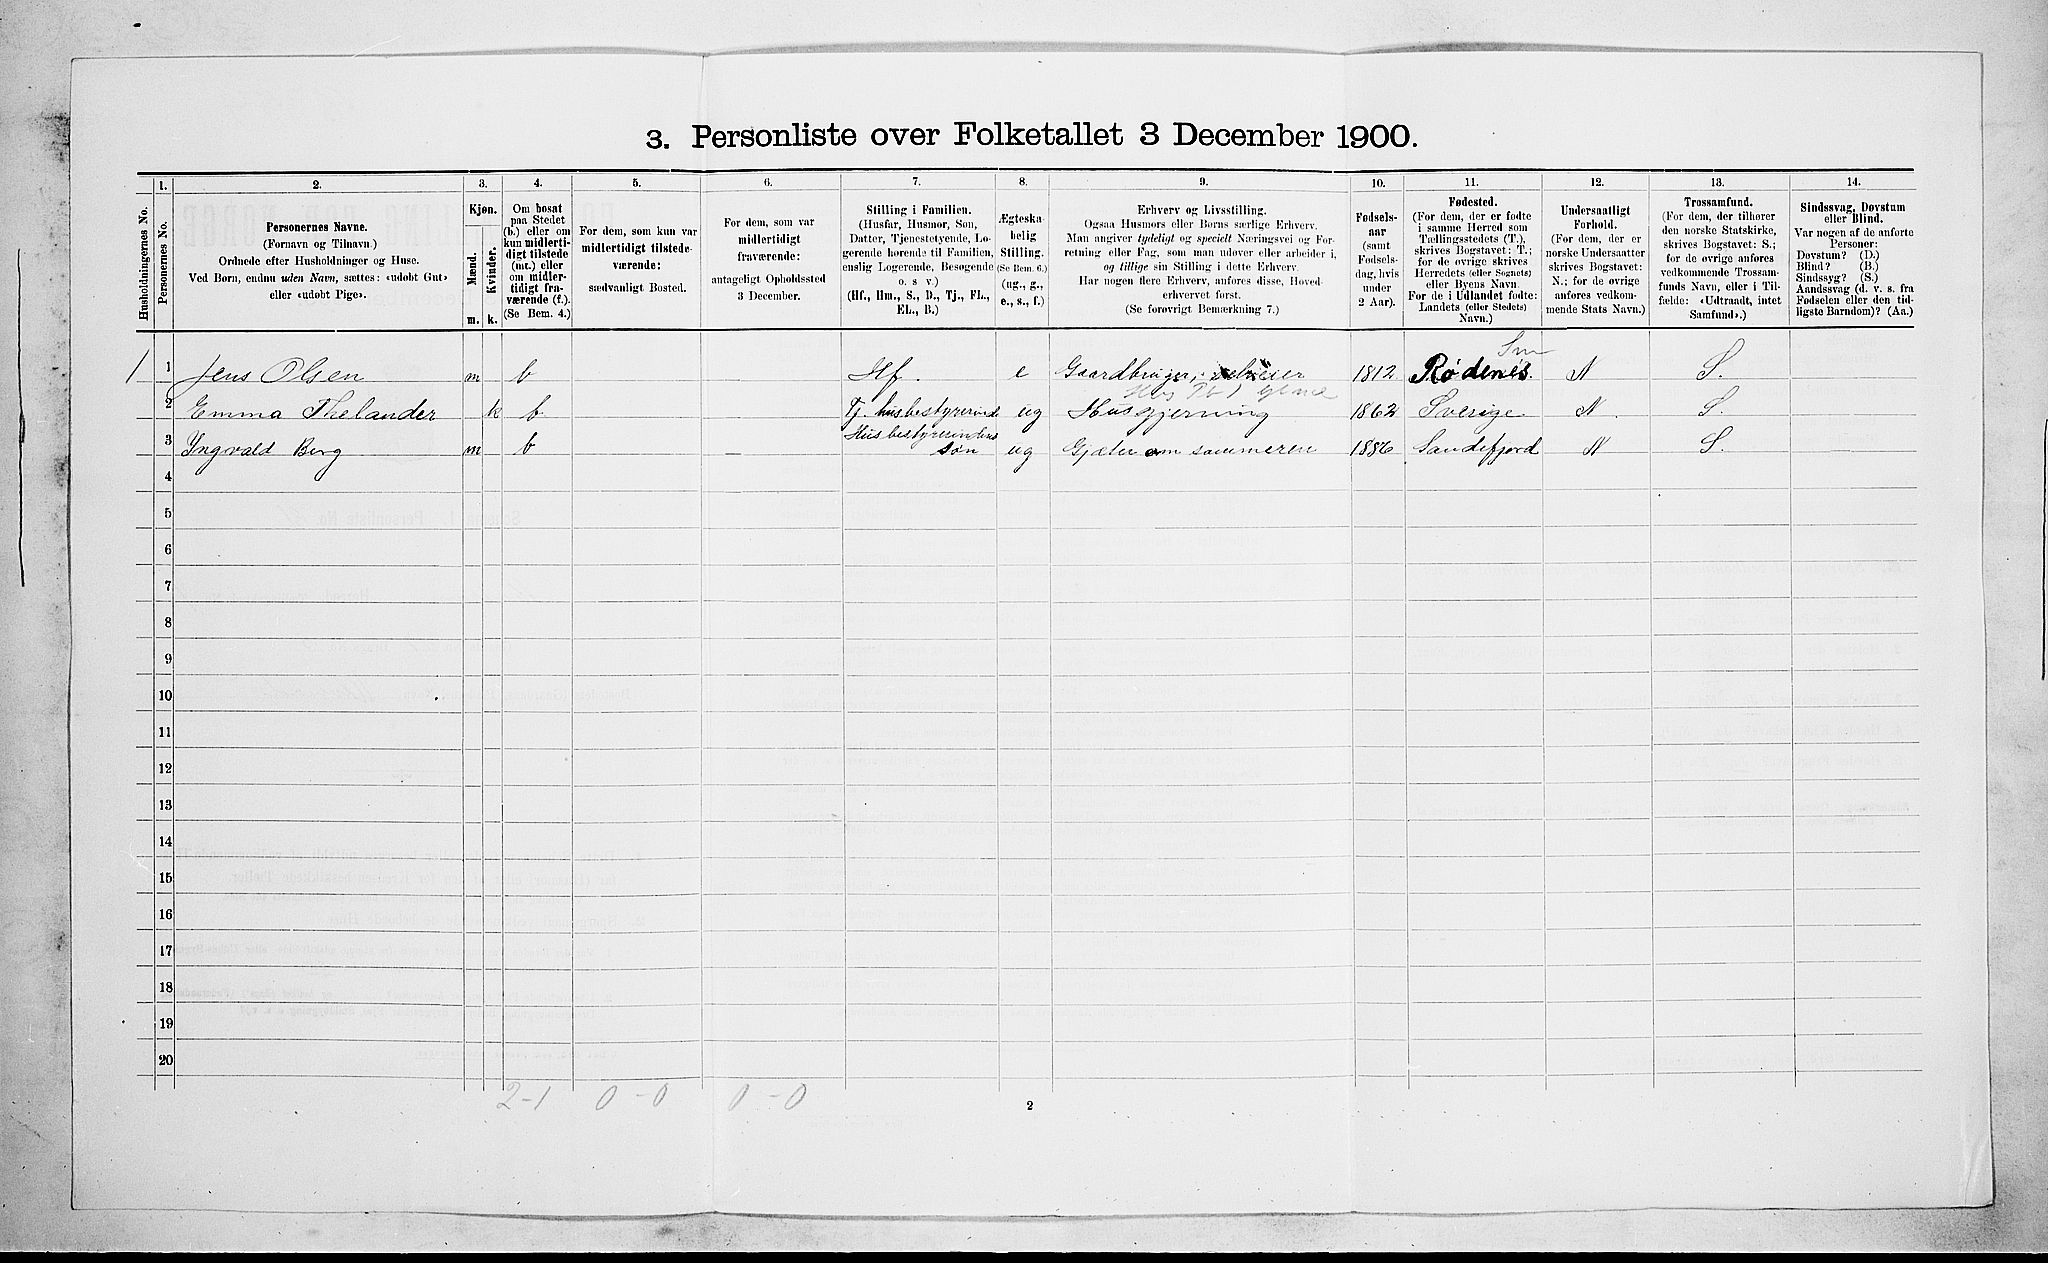 3. Personliste over Folketallet 3 December 1900.
Husholdningernes No.
1.
Personernes No.
2.
Personernes Navne.
(Fornavn og Tilnavn.)
Ordnede efter Husholdninger og Huse.
Ved Børn, endnu uden Navn, sættes: «udøbt Gut»
eller «udøbt Pige».
3.
Kjøn.
Mænd.
Kvinder.
m.
k.
4.
Om bosat
paa Stedet
(b.) eller om
kun midlerti-
digt tilstede
(mt.) eller
om midler-
tidigt fra-
værende (f.).
(Se Bem. 4.)
5.
For dem, som kun var
midlertidigt tilstede-
værende:
sædvanligt Bosted.
6.
For dem, som var
midlertidigt
fraværende:
antageligt Opholdssted
3 December.
7.
Stilling i Familien.
(Husfar, Husmor, Søn,
Datter, Tjenestetyende, Lo-
gerende hørende til Familien,
enslig Logerende, Besøgende
o. s. v.)
(Hf., Hm., S., D., Tj., FL.,
EL., B.)
8.
Ægteska-
belig
Stilling.
(Se Bem. 6.)
(ug., g.,
e., s., f.)
9.
Erhverv og Livsstilling.
Ogsaa Husmors eller Børns særlige Erhverv.
Man angiver tydeligt og specielt Næringsvei og For-
retning eller Fag, som man udøver eller arbeider i,
og tillige sin Stilling i dette Erhverv.
Har nogen flere Erhverv, anføres disse, Hoved-
erhvervet først.
(Se forøvrigt Bemærkning 7.)
10.
Fødsels-
aar
(samt
Fødsels-
dag, hvis
under
2 Aar).
11.
Fødested.
(For dem, der er fødte
i samme Herred som
Tællingsstedets (T.),
skrives Bogstavet: T.;
for de øvrige skrives
Herredets (eller Sognets)
eller Byens Navn.
For de i Udlandet fødte:
Landets (eller Stedets)
Navn.)
12.
Undersaatligt
Forhold.
(For dem, der er
norske Undersaatter
skrives Bogstavet:
N.; for de øvrige
anføres vedkom-
mende Stats Navn.)
13.
Trossamfund.
(For dem, der tilhører
den norske Statskirke,
skrives Bogstavet: S.;
for de øvrige anføres
vedkommende Trossam-
funds Navn, eller i Til-
fælde: «Udtraadt, intet
Samfund».)
14.
Sindssvag, Døvstum
eller Blind.
Var nogen af de anførte
Personer:
Døvstum? (D.)
Blind? (B.)
Sindssyg? (S.)
Aandssvag (d. v. s. fra
Fødselen eller den tid-
ligste Barndom)? (Aa.)
Sm
1 1 Jens Olsen m b Hf. e Gaardbruger, selveier 1812 Rødenes N S.
2 Emma Thelander k b Tj. husbestyrerinde ug Husgjerning 1862 Sverige N. S.
3 Yngvald Berg m b Husbestyrerindens
Søn ug Gjæter om sommeren 1886 Sandefjord N S.
4
5
6
7
8
9
10
11
12
13
14
15
16
17
18
19
20
2-1 0-0 0-0
2